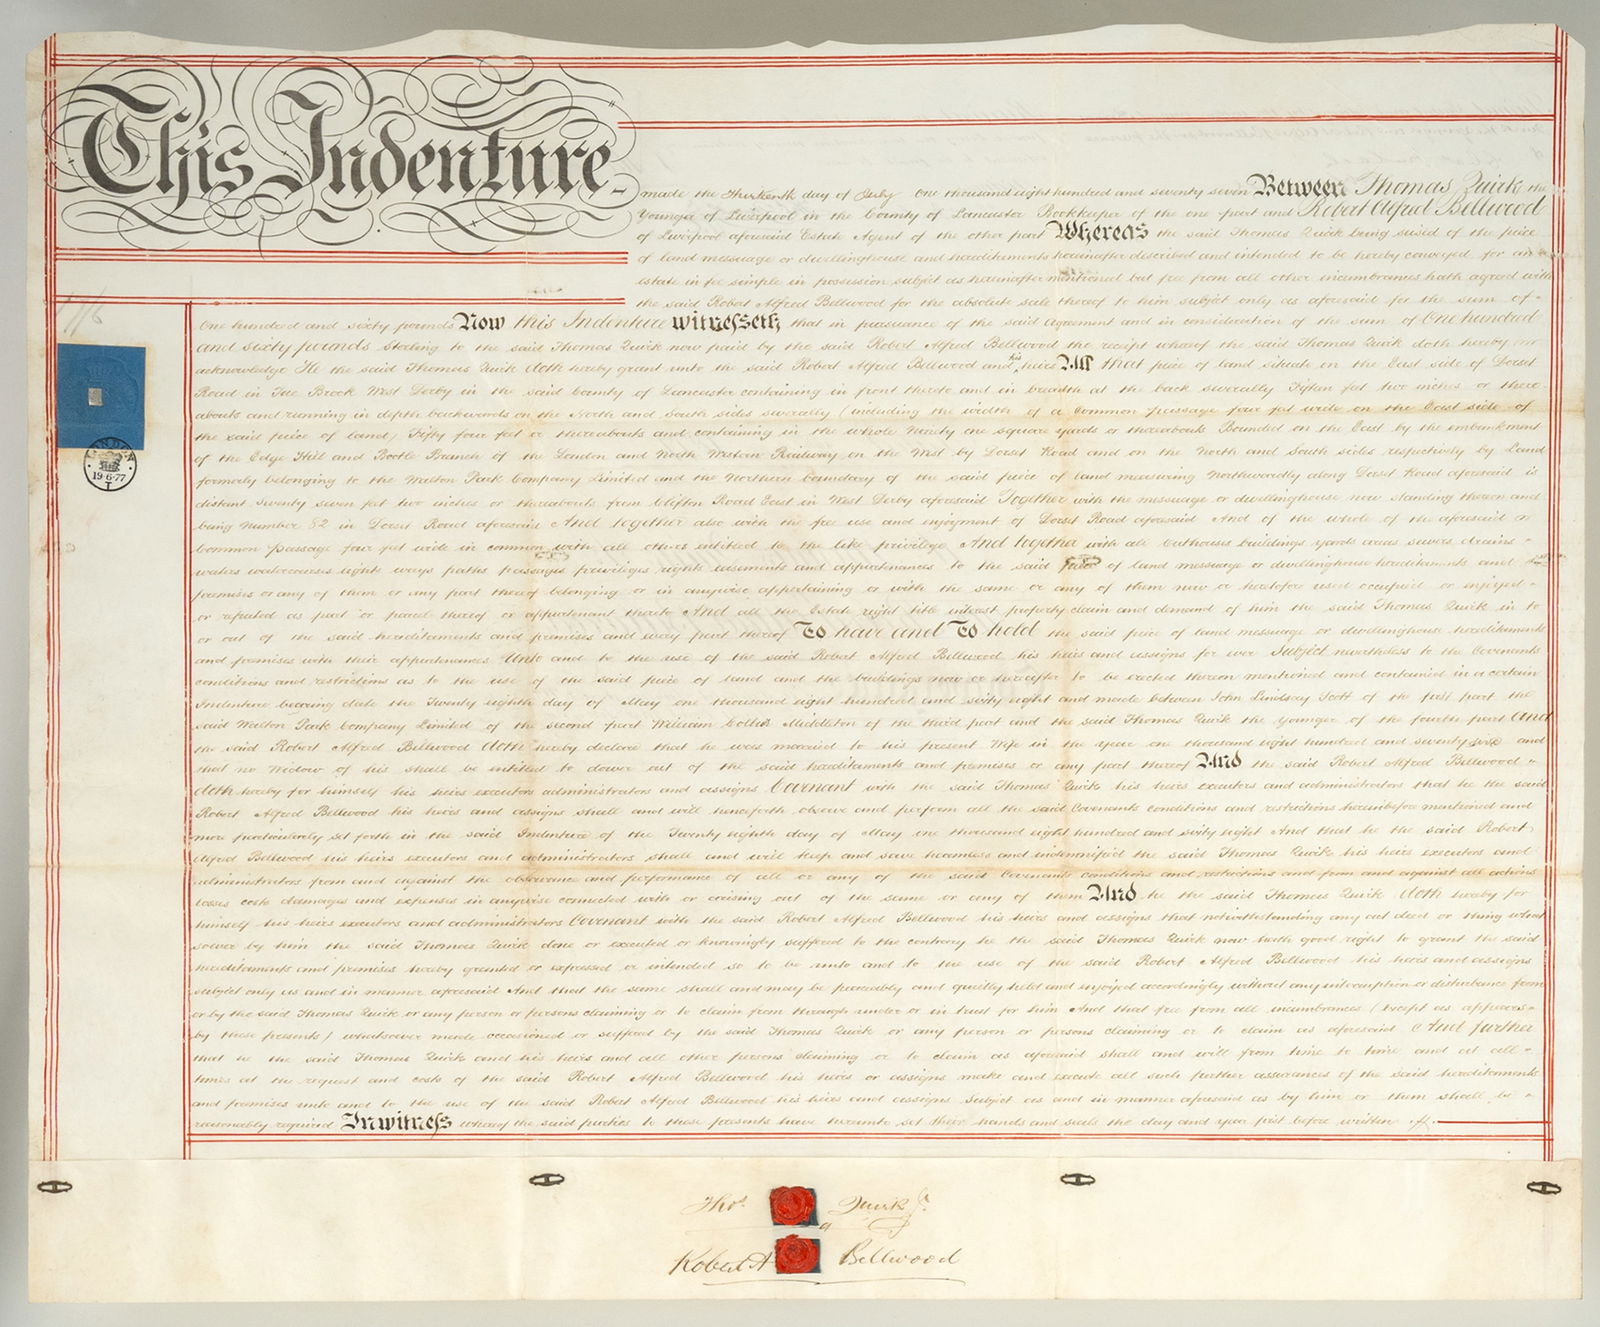 This Indenture
made the Thirteenth day of July One thousand eight hundred and seventy seven Between Thomas Quirk the
Younger of Liverpool in the County of Lancaster Bookkeeper of the one part and Robert Alfred Bellwood
of Liverpool aforesaid Estate Agent of the other part Whereas the said Thomas Quirk being seised of the piece
of land messuage or dwellinghouse and hereditaments hereinafter described and intended to be hereby conveyed for an
estate in fee simple in possession subject as hereinafter mentioned but free from all other incumbrances hath agreed with
the said Robert Alfred Bellwood for the absolute sale thereof to him subject only as aforesaid for the sum of
One hundred and sixty pounds Now this Indenture witnesseth that in pursuance of the said Agreement and in consideration of the sum of One hundred
and sixty pounds Sterling to the said Thomas Quirk now paid by the said Robert Alfred Bellwood the receipt whereof the said Thomas Quirk doth hereby
acknowledge He the said Thomas Quirk doth hereby grant unto the said Robert Alfred Bellwood and his heirs All that piece of land situate on the East side of Dorset
Road in Tue Brook West Derby in the said County of Lancaster containing in front thereto and in breadth at the back severally Fifteen feet two inches or there-
abouts and running in depth backwards on the North and South sides severally (including the width of a Common passage four feet wide on the East side of
the said piece of land) Fifty four feet or thereabouts and containing in the whole Ninety one square yards or thereabouts Bounded on the East by the embankment
of the Edge Hill and Bootle Branch of the London and North Western Railway on the West by Dorset Road and on the North and South sides respectively by Land
formerly belonging to the Walton Park Company Limited and the Northern boundary of the said piece of land measuring Northwardly along Dorset Road aforesaid is
distant Seventy seven feet two inches or thereabouts from Clifton Road East in West Derby aforesaid Together with the messuage or dwellinghouse now standing thereon and
being Number 82 in Dorset Road aforesaid And together also with the free use and enjoyment of Dorset Road aforesaid And of the whole of the aforesaid
Common passage four feet wide in common with all others entitled to the like privilege And together with all outhouses buildings yards areas sewers drains
waters watercourses lights ways paths passages privileges rights easements and appurtenances to the said piece of land messuage or dwellinghouse hereditaments and
premises or any of them or any part thereof belonging or in anywise appertaining or with the same or any of them now or heretofore used occupied or enjoyed
or reputed as part or parcel thereof or appurtenant thereto And all the Estate right title interest property claim and demand of him the said Thomas Quirk in to
or out of the said hereditaments and premises and every part thereof To have and To hold the said piece of land messuage or dwellinghouse hereditaments
and premises with their appurtenances Unto and to the use of the said Robert Alfred Bellwood his heirs and assigns for ever Subject nevertheless to the Covenants
conditions and restrictions as to the use of the said piece of land and the buildings now or hereafter to be erected thereon mentioned and contained in a certain
Indenture bearing date the Twenty eighth day of May one thousand eight hundred and sixty eight and made between John Lindsay Scott of the first part the
said Walton Park Company Limited of the second part William Middleton of the third part and the said Thomas Quirk the Younger of the fourth part And
the said Robert Alfred Bellwood doth hereby declare that he was married to his present Wife in the year one thousand eight hundred and seventy and
that no Widow of his shall be entitled to dower out of the said hereditaments and premises or any part thereof And the said Robert Alfred Bellwood
doth hereby for himself his heirs executors administrators and assigns Covenant with the said Thomas Quirk his heirs executors and administrators that he the said
Robert Alfred Bellwood his heirs and assigns shall and will henceforth observe and perform all the said Covenants Conditions and restrictions hereinbefore mentioned and
more particularly set forth in the said Indenture of the Twenty eighth day of May one thousand eight hundred and sixty eight And that he the said Robert
Alfred Bellwood his heirs executors and administrators shall and will keep and save harmless and indemnified the said Thomas Quirk his heirs executors and
administrators from and against the observance and performance of all or any of the said Covenants conditions and restrictions and from and against all actions
losses costs damages and expenses in anywise connected with or arising out of the same or any of them And he the said Thomas Quirk doth hereby for
himself his heirs executors and administrators Covenant with the said Robert Alfred Bellwood his heirs and assigns that notwithstanding any act deed or thing what
soever by him the said Thomas Quirk done or executed or knowingly suffered to the contrary he the said Thomas Quirk now hath good right to grant the said
hereditaments and premises hereby granted or expressed or intended so to be unto and to the use of the said Robert Alfred Bellwood his heirs and assigns
subject only as and in manner aforesaid And that the same shall and may be peaceably and quietly held and enjoyed accordingly without any interruption or disturbance from
or by the said Thomas Quirk or any person or persons claiming or to claim from through under or in trust for him And that free from all incumbrances (except as appears
by these presents) whatsoever made occasioned or suffered by the said Thomas Quirk or any person or persons claiming or to claim as aforesaid And further
that he the said Thomas Quirk and his heirs and all other persons claiming or to claim as aforesaid shall and will from time to time and at all
times at the request and costs of the said Robert Alfred Bellwood his heirs or assigns make and execute all such further assurances of the said hereditaments
and premises unto and to the use of the said Robert Alfred Bellwood his heirs and assigns Subject as and in manner aforesaid as by him or them shall be
reasonably required In witness whereof the said parties to these presents have hereunto set their hands and seals the day and year first before written
LONDON
19·6·77
T
Thos. Quirk Jr.
Robert A Bellwood